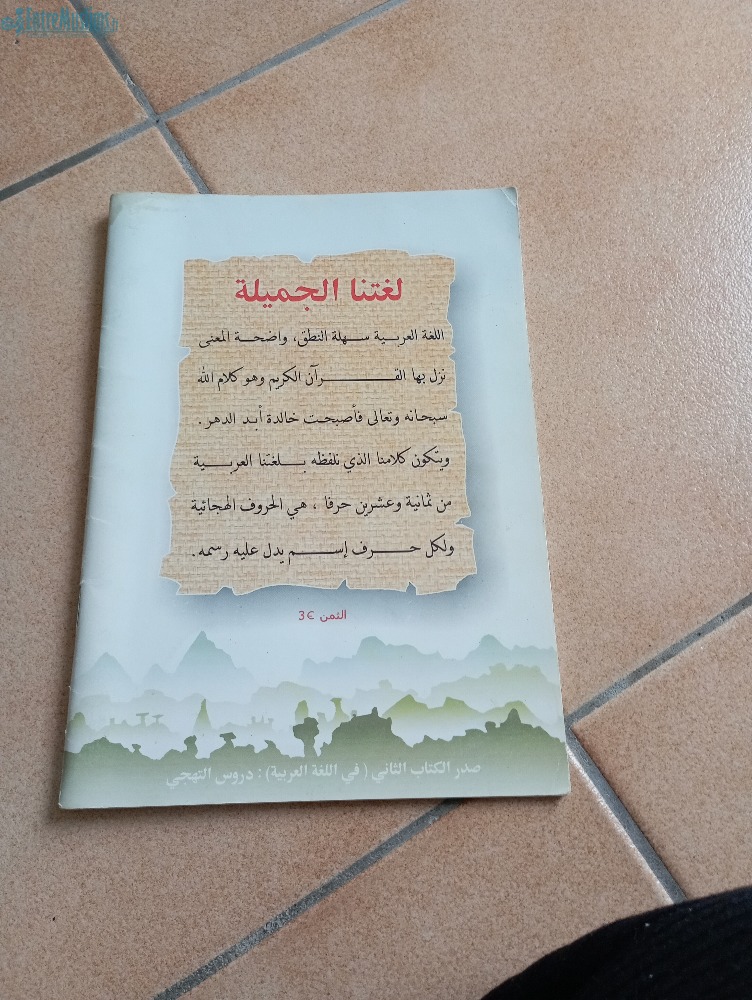 لغتنا الجميلة
اللغة العربية سهلة النطق، واضحة المعنى
نزل بها القرآن الكريم وهو كلام الله
سبحانه وتعالى فأصبحت خالدة أبد الدهر.
ويتكون كلامنا الذي نلفظه بلغتنا العربية
من ثمانية وعشرين حرفا، هي الحروف الهجائية
ولكل حرف إسم يدل عليه رسمه.
الثمن 3€
صدر الكتاب الثاني (في اللغة العربية): دروس التهجي